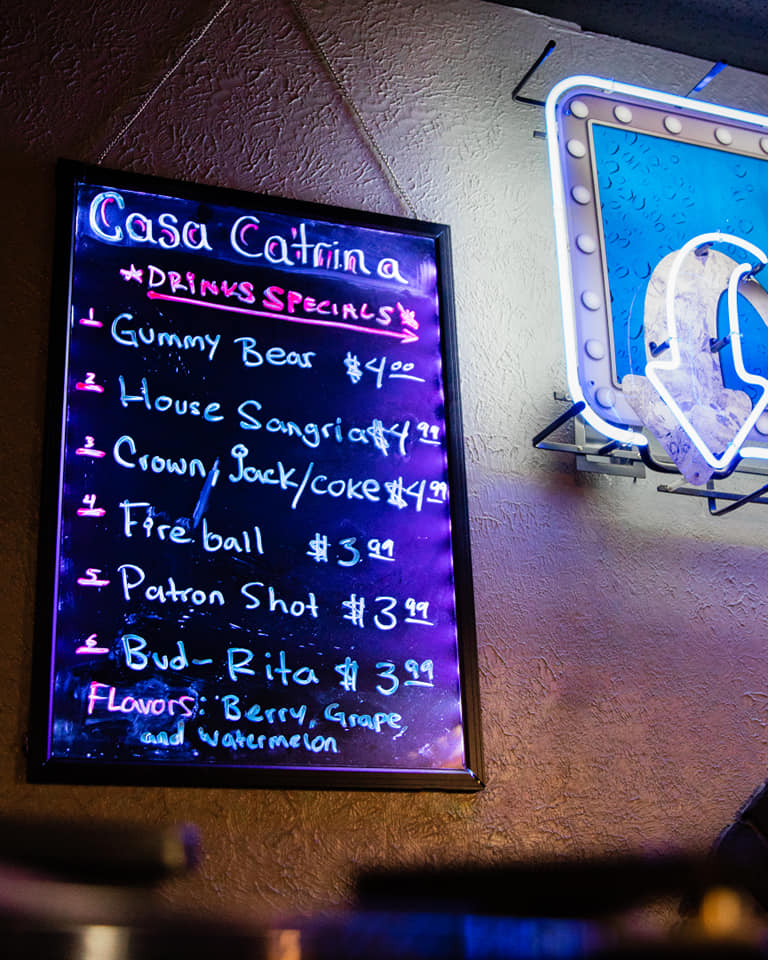 Casa Catrina
*DRINKS SPECIALS*
1 Gummy Bear $4.00
2 House Sangria $4.99
3 Crown, Jack/coke $4.99
4 Fireball $3.99
5 Patron Shot $3.99
6 Bud-Rita $3.99
Flavors: Berry, Grape
and watermelon